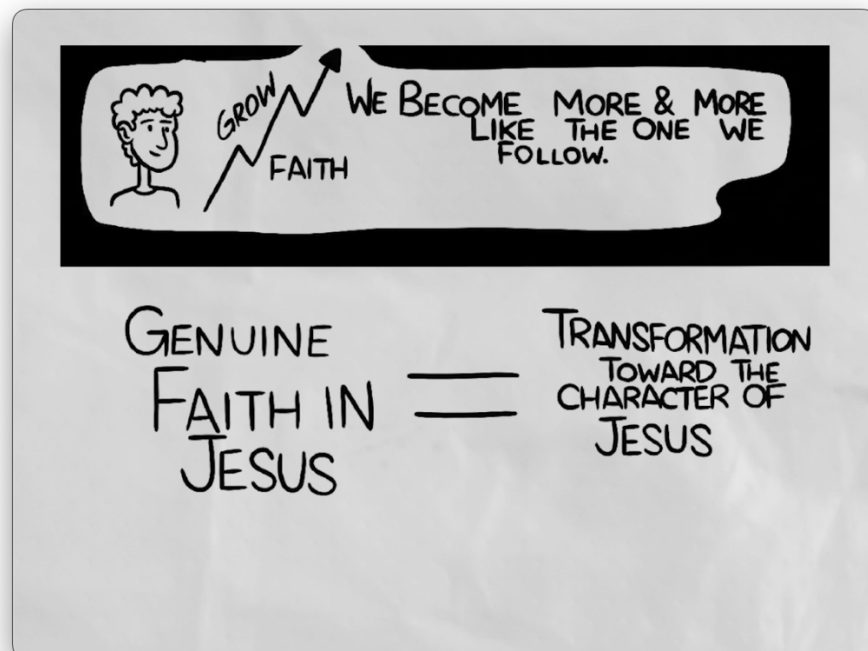 GROW
FAITH
WE BECOME MORE & MORE
LIKE THE ONE WE
FOLLOW.
GENUINE
FAITH IN
JESUS
=
TRANSFORMATION
TOWARD THE
CHARACTER OF
JESUS